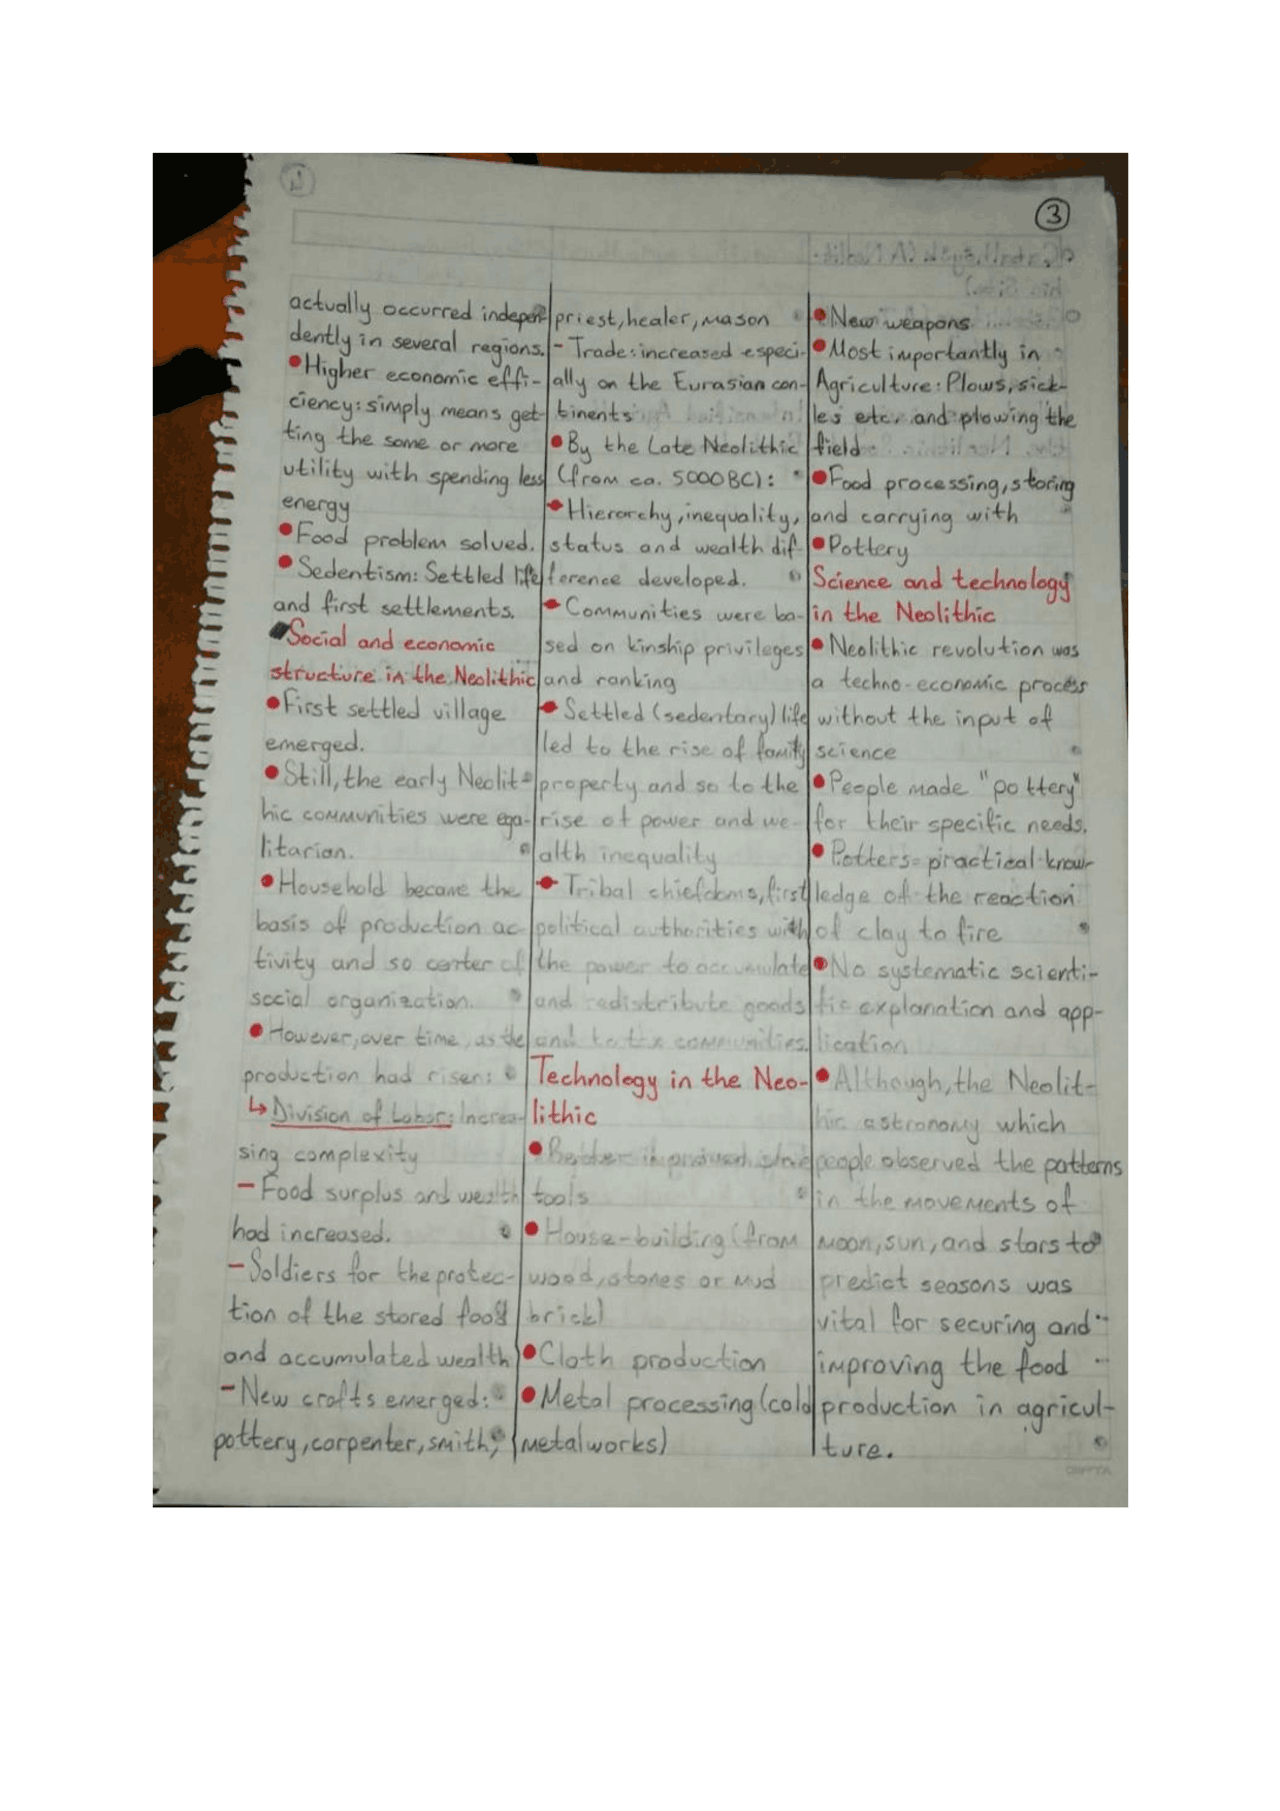 3
actually occurred indepen-
dently in several regions.
• Higher economic effi-
ciency: simply means get-
ting the same or more
utility with spending less
energy
• Food problem solved.
• Sedentism: Settled life
and first settlements.
Social and economic
structure in the Neolithic
• First settled village
emerged.
• Still, the early Neolit-
hic communities were ega-
litarian.
• Household became the
basis of production ac-
tivity and so center of
social organization.
• However, over time, as the
production had risen:
↳ Division of Labor: Increa-
sing complexity
- Food surplus and wealth
had increased.
- Soldiers for the protec-
tion of the stored food
and accumulated wealth
- New crafts emerged:
pottery, carpenter, smith,
priest, healer, mason
- Trade: increased especi-
ally on the Eurasian con-
tinents
• By the Late Neolithic
(from ca. 5000 BC):
• Hierarchy, inequality,
status and wealth dif-
ference developed.
• Communities were ba-
sed on kinship privileges
and ranking
• Settled (sedentary) life
led to the rise of family
property and so to the
rise of power and we-
alth inequality
• Tribal chiefdoms, first
political authorities with
the power to accumulate
and redistribute goods
and to tax communities.
Technology in the Neo-
lithic
• Better improved stone
tools
• House-building (from
wood, stones or mud
brick)
• Cloth production
• Metal processing (cold
metalworks)
• New weapons
• Most importantly in
Agriculture: Plows, sick-
les etc. and plowing the
field
• Food processing, storing
and carrying with
• Pottery
Science and technology
in the Neolithic
• Neolithic revolution was
a techno-economic process
without the input of
science
• People made "pottery"
for their specific needs.
• Potters= practical know-
ledge of the reaction
of clay to fire
• No systematic scienti-
fic explanation and app-
lication
• Although, the Neolit-
hic astronomy which
people observed the patterns
in the movements of
moon, sun, and stars to
predict seasons was
vital for securing and
improving the food
production in agricul-
ture.